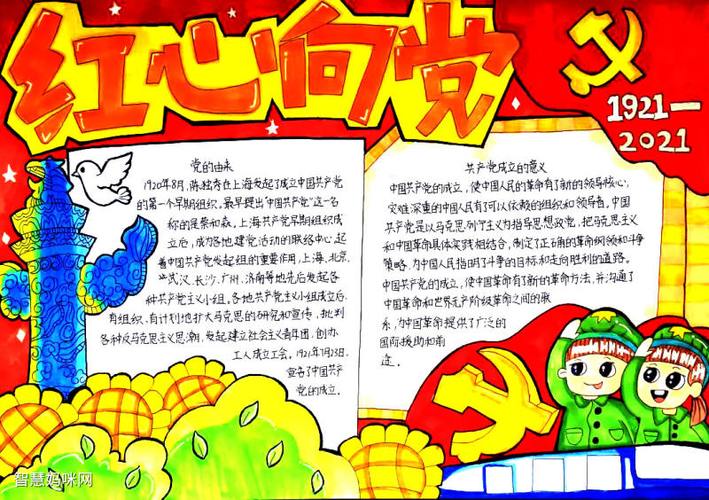 红心向党
1921—
2021
党的由来
1920年8月,陈独秀在上海发起了成立中国共产党
的第一个早期组织,最早提出"中国共产党"这一名
称的是蔡和森,上海共产党早期组织成
立后,成为各地建党活动的联络中心,起
着中国共产党发起组的重要作用,上海、北京、
武汉、长沙、广州、济南等地先后发起各
种共产党主义小组,各地共产党主义小组成立后,
有组织、有计划地扩大马克思的研究和宣传,批判
各种反马克思主义思潮,发起建立社会主义青年团、创办
工人成立工会。1921年7月23日,
宣告了中国共产
党的成立。
共产党成立的意义
中国共产党的成立,使中国人民的革命有了新的领导核心,
灾难深重的中国人民有了可以依赖的组织和领导者,中国
共产党是以马克思列宁主义为指导思想政党,把马克思主义
和中国革命具体实践相结合,制定了正确的革命纲领和斗争
策略,为中国人民指明了斗争的目标和走向胜利的道路。
中国共产党的成立,使中国革命有了新的革命方法,并沟通了
中国革命和世界无产阶级革命之间的联
系,为中国革命提供了广泛的
国际援助和前
途。
智慧妈咪网